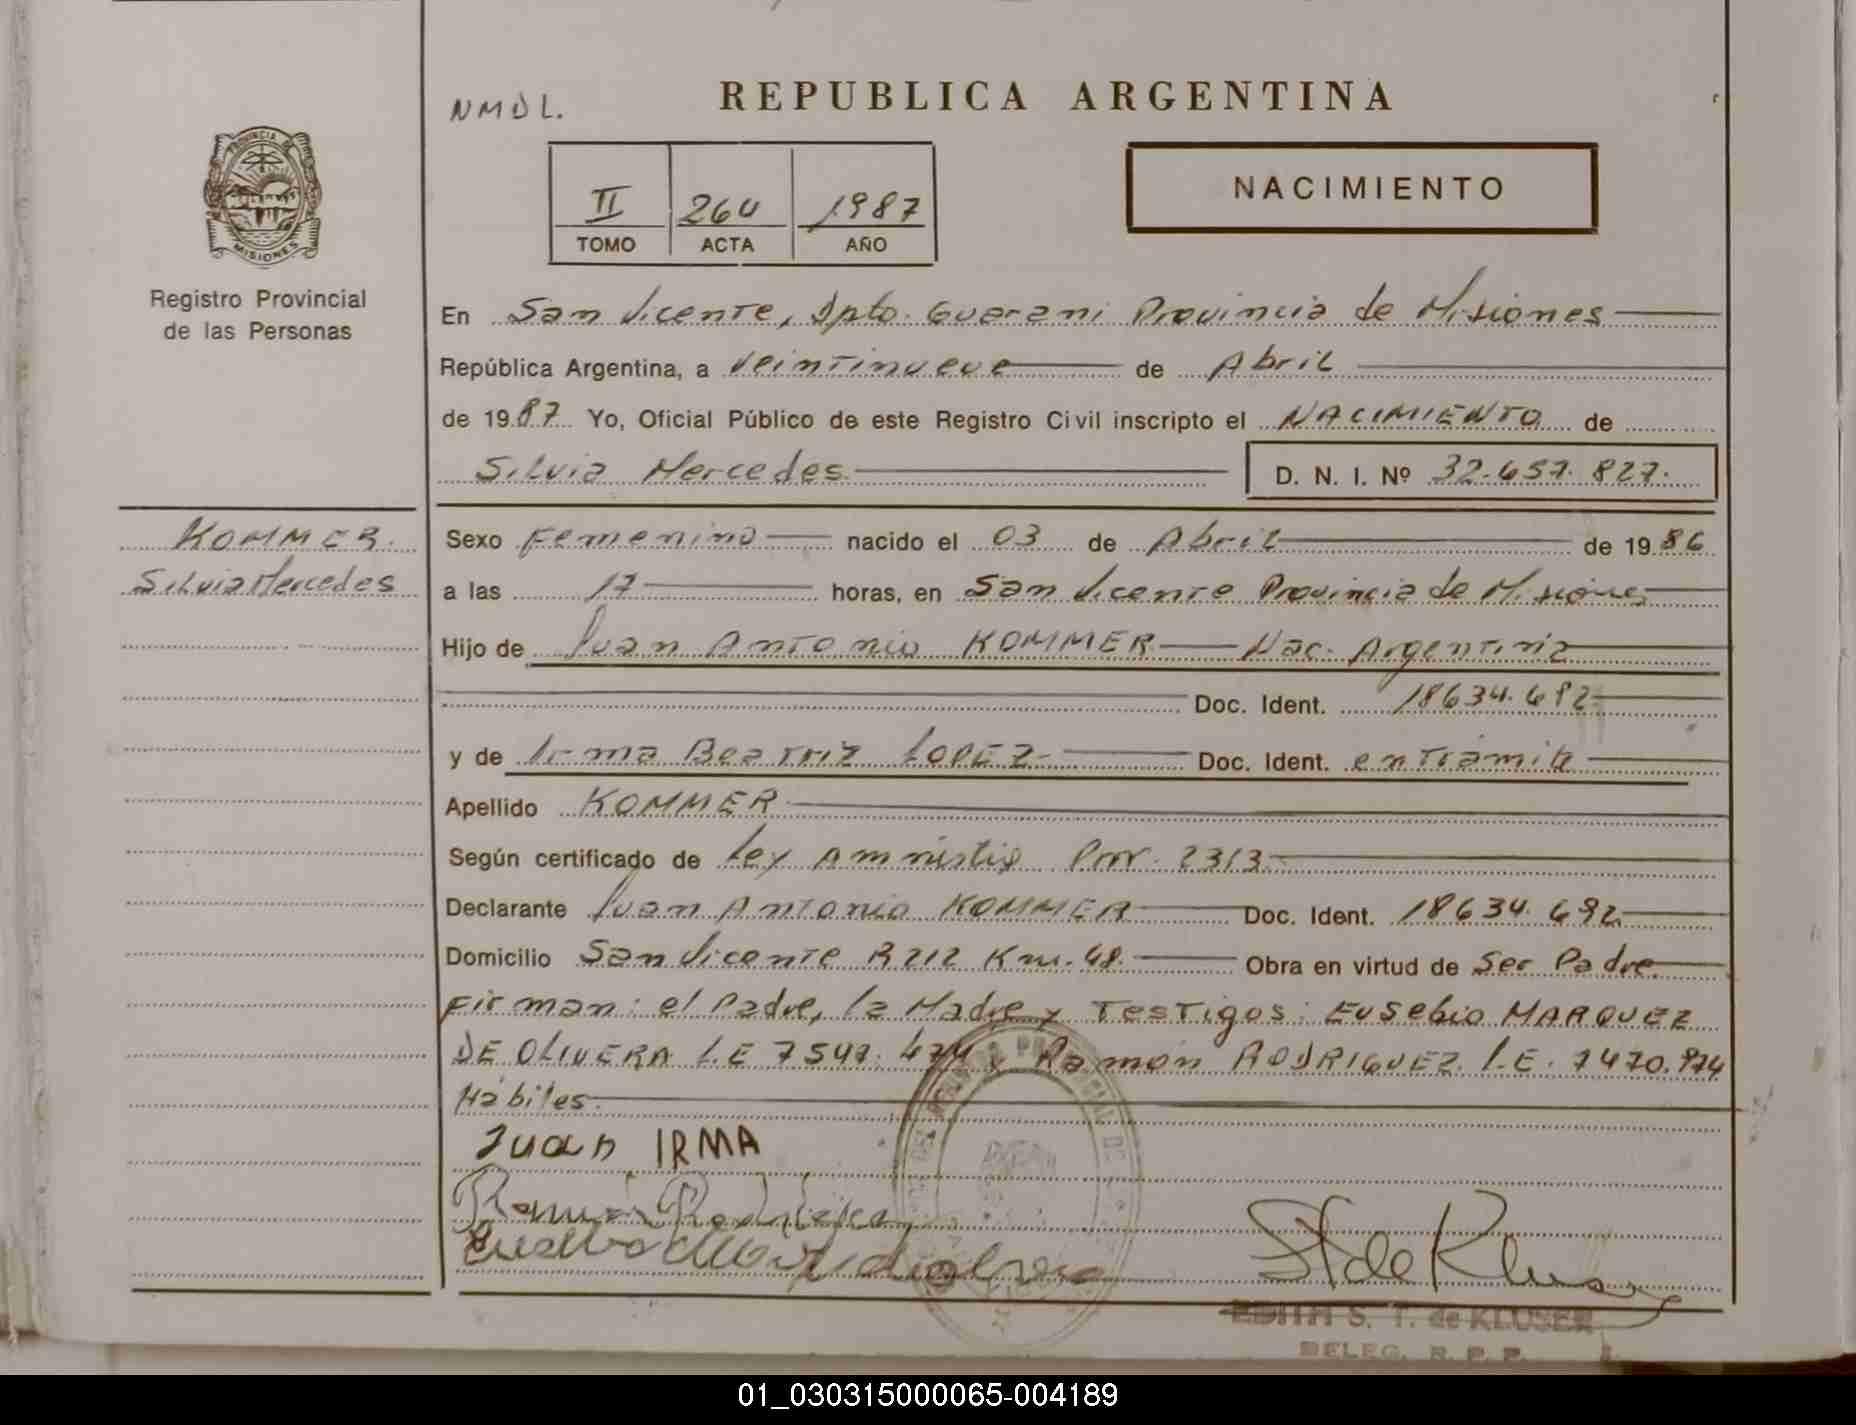 NMDL.
REPUBLICA ARGENTINA
II 264 1987
TOMO ACTA AÑO
NACIMIENTO
PROVINCIA DE
MISIONES
Registro Provincial
de las Personas
En San Vicente, Dpto. Guarani Provincia de Misiones
República Argentina, a Veintinueve de Abril
de 1987 Yo, Oficial Público de este Registro Civil inscripto el NACIMIENTO de
Silvia Mercedes D. N. I. Nº 32.657.827.
KOMMER.
Silvia Mercedes
Sexo Femenino nacido el 03 de Abril de 1986
a las 17 horas, en San Vicente Provincia de Misiones
Hijo de Juan Antonio KOMMER Nac. Argentina
Doc. Ident. 18634.692
y de Irma Beatriz LOPEZ Doc. Ident. en Trámite
Apellido KOMMER
Según certificado de Ley Amnistia Prov. 2313.
Declarante Juan Antonio KOMMER Doc. Ident. 18634.692
Domicilio San Vicente R 212 Km. 48. Obra en virtud de Ser Padre
Firman: el Padre, la Madre y Testigos: Eusebio MARQUEZ
DE OLIVERA L.E 7547. y Ramón RODRIGUEZ. L.E. 7470.974
Hábiles.
Juan IRMA
Ramón Rodriguez
EDITH S. T. de KLUSER
DELEG. R. P. P.
01_030315000065-004189